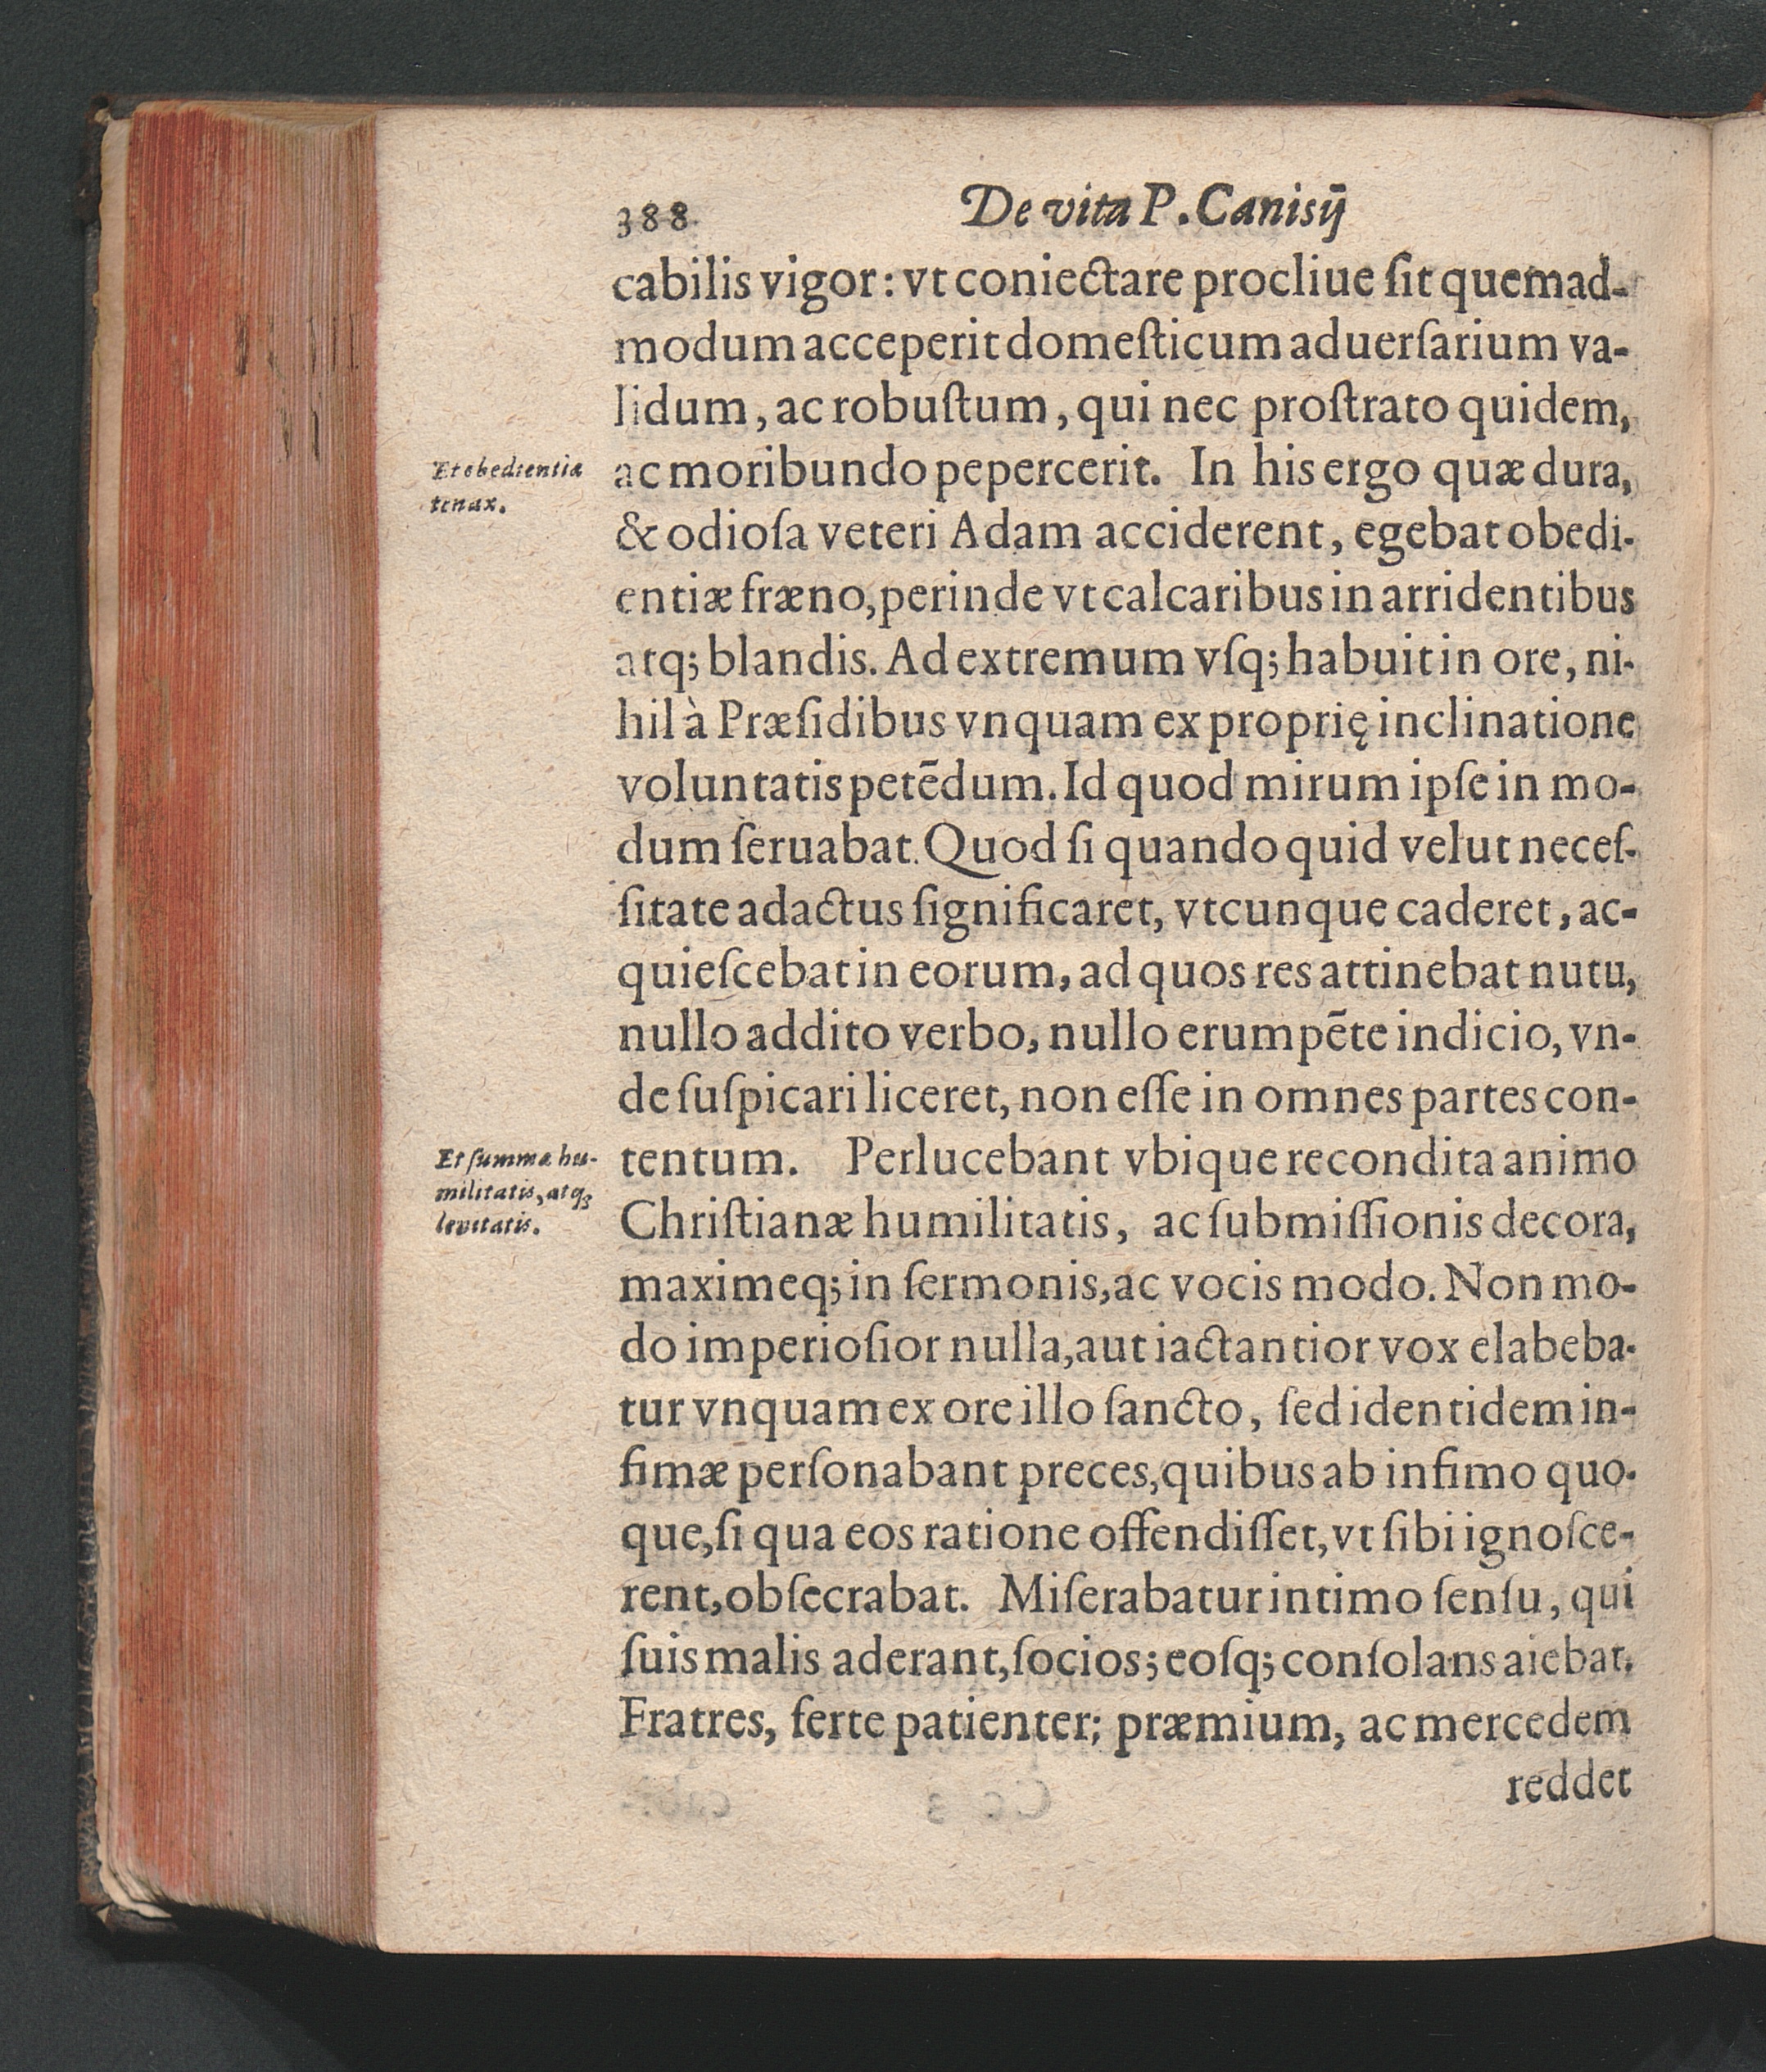 388
De vita P. Canisij
cabilis vigor: vt coniectare procliue ſit quemad-
modum acceperit domeſticum aduerſarium va-
lidum, ac robuſtum, qui nec proſtrato quidem,
Et obedientiæ
tenax.
ac moribundo pepercerit. In his ergo quæ dura,
& odioſa veteri Adam acciderent, egebat obedi-
entiæ fræno, perinde vt calcaribus in arridentibus
atq; blandis. Ad extremum vſq; habuit in ore, ni-
hil à Præſidibus vnquam ex proprię inclinatione
voluntatis petēdum. Id quod mirum ipſe in mo-
dum ſeruabat. Quod ſi quando quid velut neceſ-
ſitate adactus ſignificaret, vtcunque caderet, ac-
quieſcebat in eorum, ad quos res attinebat nutu,
nullo addito verbo, nullo erumpēte indicio, vn-
de ſuſpicari liceret, non eſſe in omnes partes con-
Et ſummæ hu-
militatis, atq;
levitatis.
tentum. Perlucebant vbique recondita animo
Chriſtianæ humilitatis, ac ſubmiſſionis decora,
maximeq; in ſermonis, ac vocis modo. Non mo-
do imperioſior nulla, aut iactantior vox elabeba-
tur vnquam ex ore illo ſancto, ſed identidem in-
fimæ perſonabant preces, quibus ab infimo quo-
que, ſi qua eos ratione offendiſſet, vt ſibi ignoſce-
rent, obſecrabat. Miſerabatur intimo ſenſu, qui
ſuis malis aderant, ſocios; eoſq; conſolans aiebat.
Fratres, ferte patienter; præmium, ac mercedem
reddet